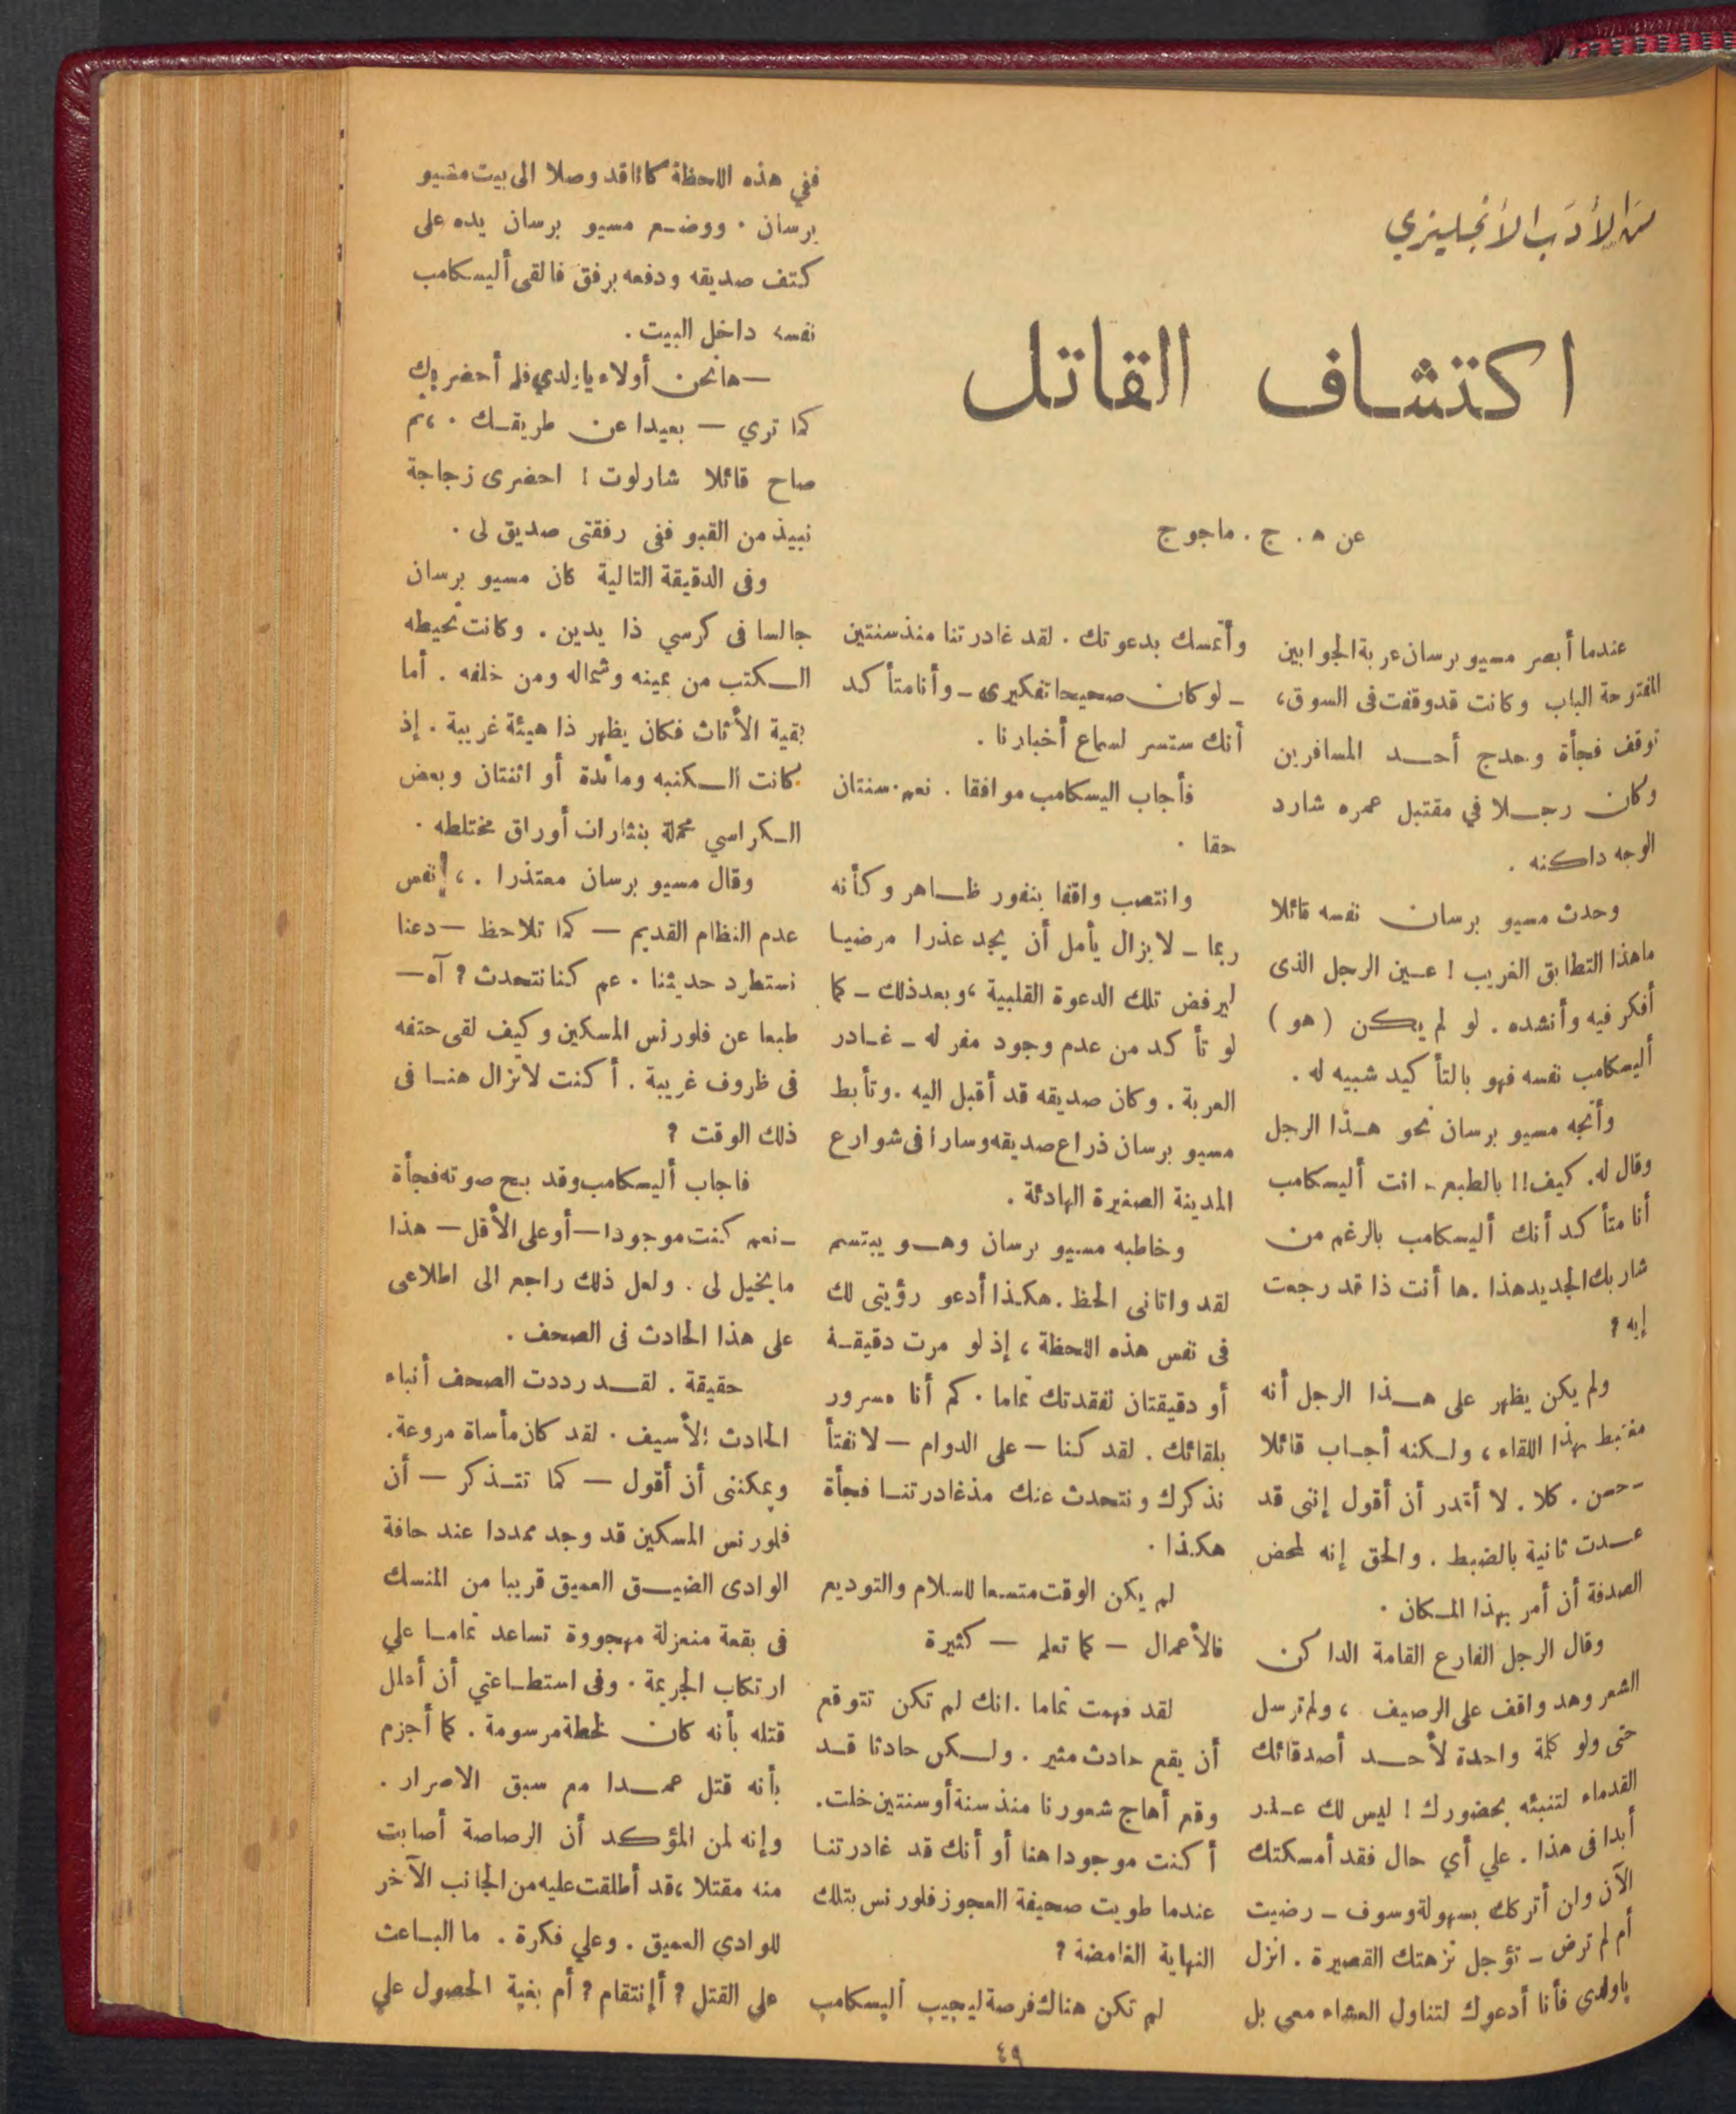 من الأدب الأنجليزي
اكتشاف القاتل
عن ه . ج . ماجوج
عندما أبصر مسيو برسان عربة الجوابين
المفتوحة الباب وكانت قد وقفت فى السوق،
توقف فجأة وحدج أحد المسافرين
وكان رجلا في مقتبل عمره شارد
الوجه داكنه .
وحدث مسيو برسان نفسه قائلا
ماهذا التطابق الغريب ! عين الرجل الذى
أفكر فيه وأنشده . لو لم يكن ( هو )
أليسكامب نفسه فهو بالتأكيد شبيه له .
وأتجه مسيو برسان نحو هذا الرجل
وقال له . كيف!! بالطبع - انت أليسكامب
أنا متأكد أنك أليسكامب بالرغم من
شاربك الجديد هذا . ها أنت ذا قد رجعت
إيه ؟
ولم يكن يظهر على هذا الرجل أنه
مغتبط بهذا اللقاء ، ولكنه أجاب قائلا
- حسن . كلا . لا أقدر أن أقول إننى قد
عدت ثانية بالضبط . والحق إنه لمحض
الصدفة أن أمر بهذا المكان .
وقال الرجل الفارع القامة الداكن
الشعر وهد واقف على الرصيف ، ولم ترسل
حتى ولو كلمة واحدة لأحد أصدقائك
القدماء لتنبئه بحضورك ! ليس لك عذر
أبدا فى هذا . علي أي حال فقد أمسكتك
الآن ولن أتركك بسهولة وسوف - رضيت
أم لم ترض - تؤجل نزهتك القصيرة . انزل
ياولدي فأنا أدعوك لتناول العشاء معي بل
وأتمسك بدعوتك . لقد غادرتنا منذ سنتين
- لو كان صحيحا تفكيرى - وأنا متأكد
أنك ستسر لسماع أخبارنا .
فأجاب اليسكامب موافقا . نعم . سنتان
حقا .
وانتصب واقفا بنفور ظاهر وكأنه
ربما - لا يزال يأمل أن يجد عذرا مرضيا
ليرفض تلك الدعوة القلبية ، وبعد ذلك - كما
لو تأكد من عدم وجود مفر له - غادر
العربة . وكان صديقه قد أقبل اليه . وتأبط
مسيو برسان ذراع صديقه وسارا فى شوارع
المدينة الصغيرة الهادئة .
وخاطبه مسيو برسان وهو يبتسم
لقد واتانى الحظ . هكذا أدعو رؤيتى لك
فى نفس هذه اللحظة ، إذ لو مرت دقيقة
أو دقيقتان لفقدتك تماما . كم أنا مسرور
بلقائك . لقد كنا — على الدوام — لا نفتأ
نذكرك ونتحدث عنك مذ غادرتنا فجأة
هكذا .
لم يكن الوقت متسعا للسلام والتوديع
فالأعمال — كما تعلم — كثيرة
لقد فهمت تماما . انك لم تكن تتوقع
أن يقع حادث مثير . ولكن حادثا قد
وقع أهاج شعورنا منذ سنة أو سنتين خلت .
أكنت موجودا هنا أو أنك قد غادرتنا
عندما طويت صحيفة العجوز فلورنس بتلك
النهاية الغامضة ؟
لم تكن هناك فرصة ليجيب أليسكامب
ففي هذه اللحظة كانا قد وصلا الى بيت مسيو
برسان . ووضع مسيو برسان يده على
كتف صديقه ودفعه برفق فالقى أليسكامب
نفسه داخل البيت .
— هانحن أولاء ياولدي فلم أحضر بك
كما تري — بعيدا عن طريقك . ، ثم
صاح قائلا شارلوت ! احضرى زجاجة
نبيذ من القبو ففى رفقتى صديق لى .
وفى الدقيقة التالية كان مسيو برسان
جالسا فى كرسي ذا يدين . وكانت تحيطه
الكتب من يمينه وشماله ومن خلفه . أما
بقية الأثاث فكان يظهر ذا هيئة غريبة . إذ
كانت الكنبه ومائدة أو اثنتان وبعض
الكراسي محملة بنثارات أوراق مختلطه .
وقال مسيو برسان معتذرا . ، إنفس
عدم النظام القديم — كما تلاحظ — دعنا
نستطرد حديثنا . عم كنا نتحدث ؟ آه —
طبعا عن فلورنس المسكين وكيف لقى حتفه
فى ظروف غريبة . أكنت لاتزال هنا فى
ذلك الوقت ؟
فاجاب أليسكامب وقد بح صوته فجأة
- نعم كنت موجودا — أو على الأقل — هذا
مايخيل لى . ولعل ذلك راجع الى اطلاعى
على هذا الحادث فى الصحف .
حقيقة . لقد رددت الصحف أنباء
الحادث الأسيف . لقد كان مأساة مروعة .
ويمكننى أن أقول — كما تتذكر — أن
فلورنس المسكين قد وجد ممددا عند حافة
الوادى الضيق العميق قريبا من المنسك
فى بقعة منعزلة مهجووة تساعد تماما علي
ارتكاب الجريمة . وفى استطاعتي أن أعلل
قتله بأنه كان لخطة مرسومة . كما أجزم
بأنه قتل عمدا مع سبق الاصرار .
وإنه لمن المؤكد أن الرصاصة أصابت
منه مقتلا ، قد أطلقت عليه من الجانب الآخر
للوادي العميق . وعلي فكرة . ما الباعث
علي القتل ؟ أإنتقام ؟ أم بغية الحصول علي
٤٩